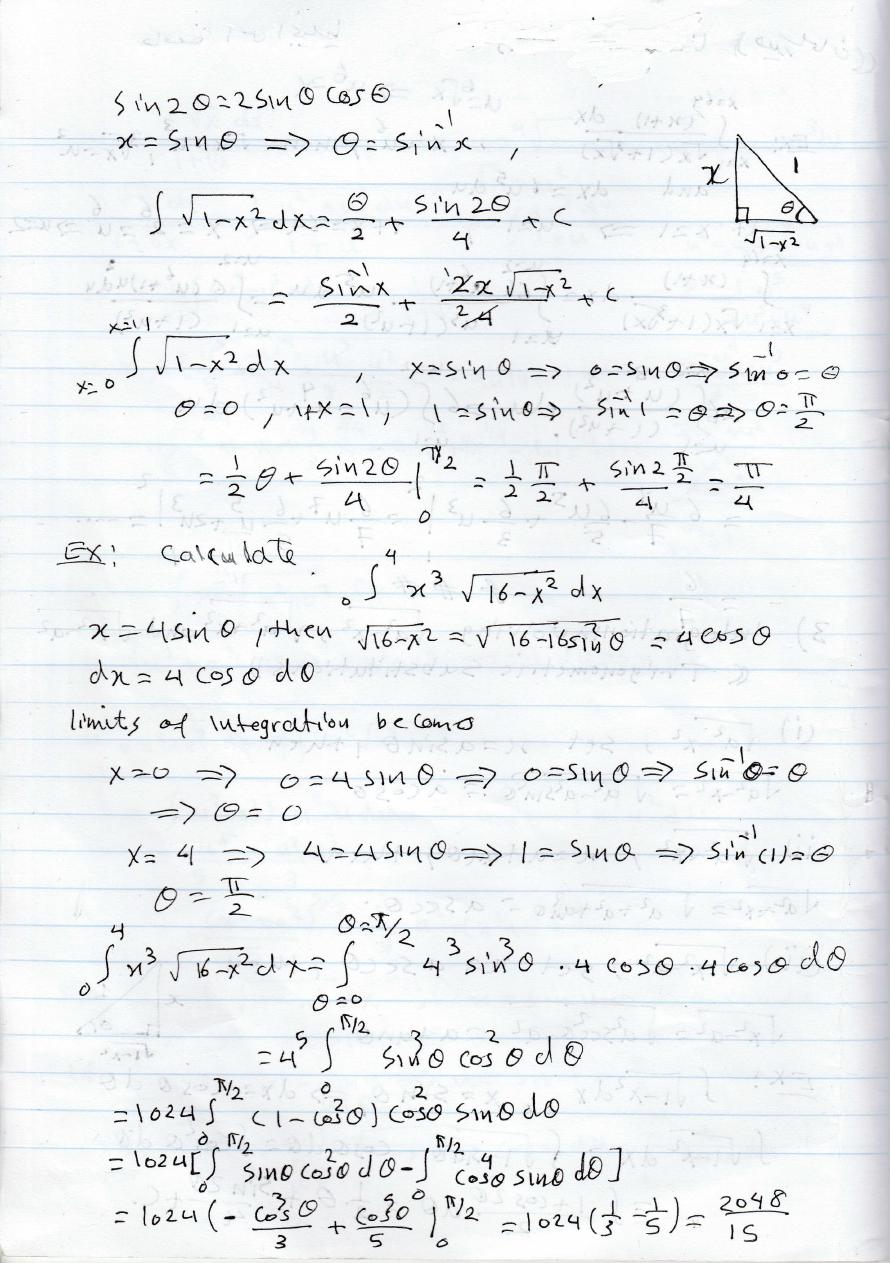 sin2θ=2sinθ cosθ
x = sinθ => θ = sin⁻¹x ,
x 1 θ √1-x²
∫ √1-x² dx = θ/2 + sin 2θ/4 + C
= sin⁻¹x/2 + 2x √1-x²/4 2 + C
x=1 ∫ x=0 √1-x² dx , x=sinθ => 0=sinθ => sin⁻¹0=θ
θ=0 , if x=1, 1=sinθ => sin⁻¹1=θ => θ=π/2
= 1/2 θ + sin2θ/4 |₀^π/2 = 1/2 π/2 + sin2 π/2 /4 = π/4
EX: Calculate
₀∫⁴ x³ √16-x² dx
x = 4sinθ, then √16-x² = √16-16sin²θ = 4cosθ
dx = 4 cosθ dθ
limits of Integration becoms
x=0 => 0=4sinθ => 0=sinθ => sin⁻¹0=θ
=> θ = 0
x= 4 => 4=4sinθ => 1=sinθ => sin⁻¹(1)=θ
θ = π/2
₀∫⁴ x³ √16-x² dx = ∫ θ=0 θ=π/2 4³ sin³θ · 4 cosθ · 4 cosθ dθ
= 4⁵ ∫₀^π/2 sin³θ cos²θ dθ
= 1024 ∫₀^π/2 (1-cos²θ) cos²θ sinθ dθ
= 1024 [∫₀^π/2 sinθ cos²θ dθ - ∫₀^π/2 cos⁴θ sinθ dθ]
= 1024 (- cos³θ/3 + cos⁵θ/5 |₀^π/2 = 1024 (1/3 - 1/5) = 2048/15